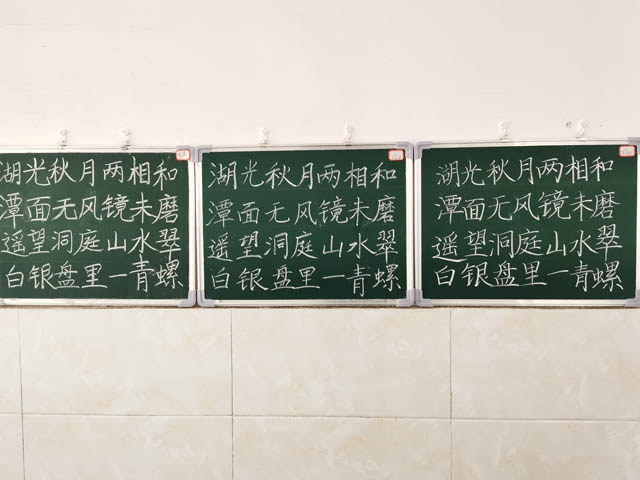 湖光秋月两相和
潭面无风镜未磨
遥望洞庭山水翠
白银盘里一青螺
湖光秋月两相和
潭面无风镜未磨
遥望洞庭山水翠
白银盘里一青螺
湖光秋月两相和
潭面无风镜未磨
遥望洞庭山水翠
白银盘里一青螺